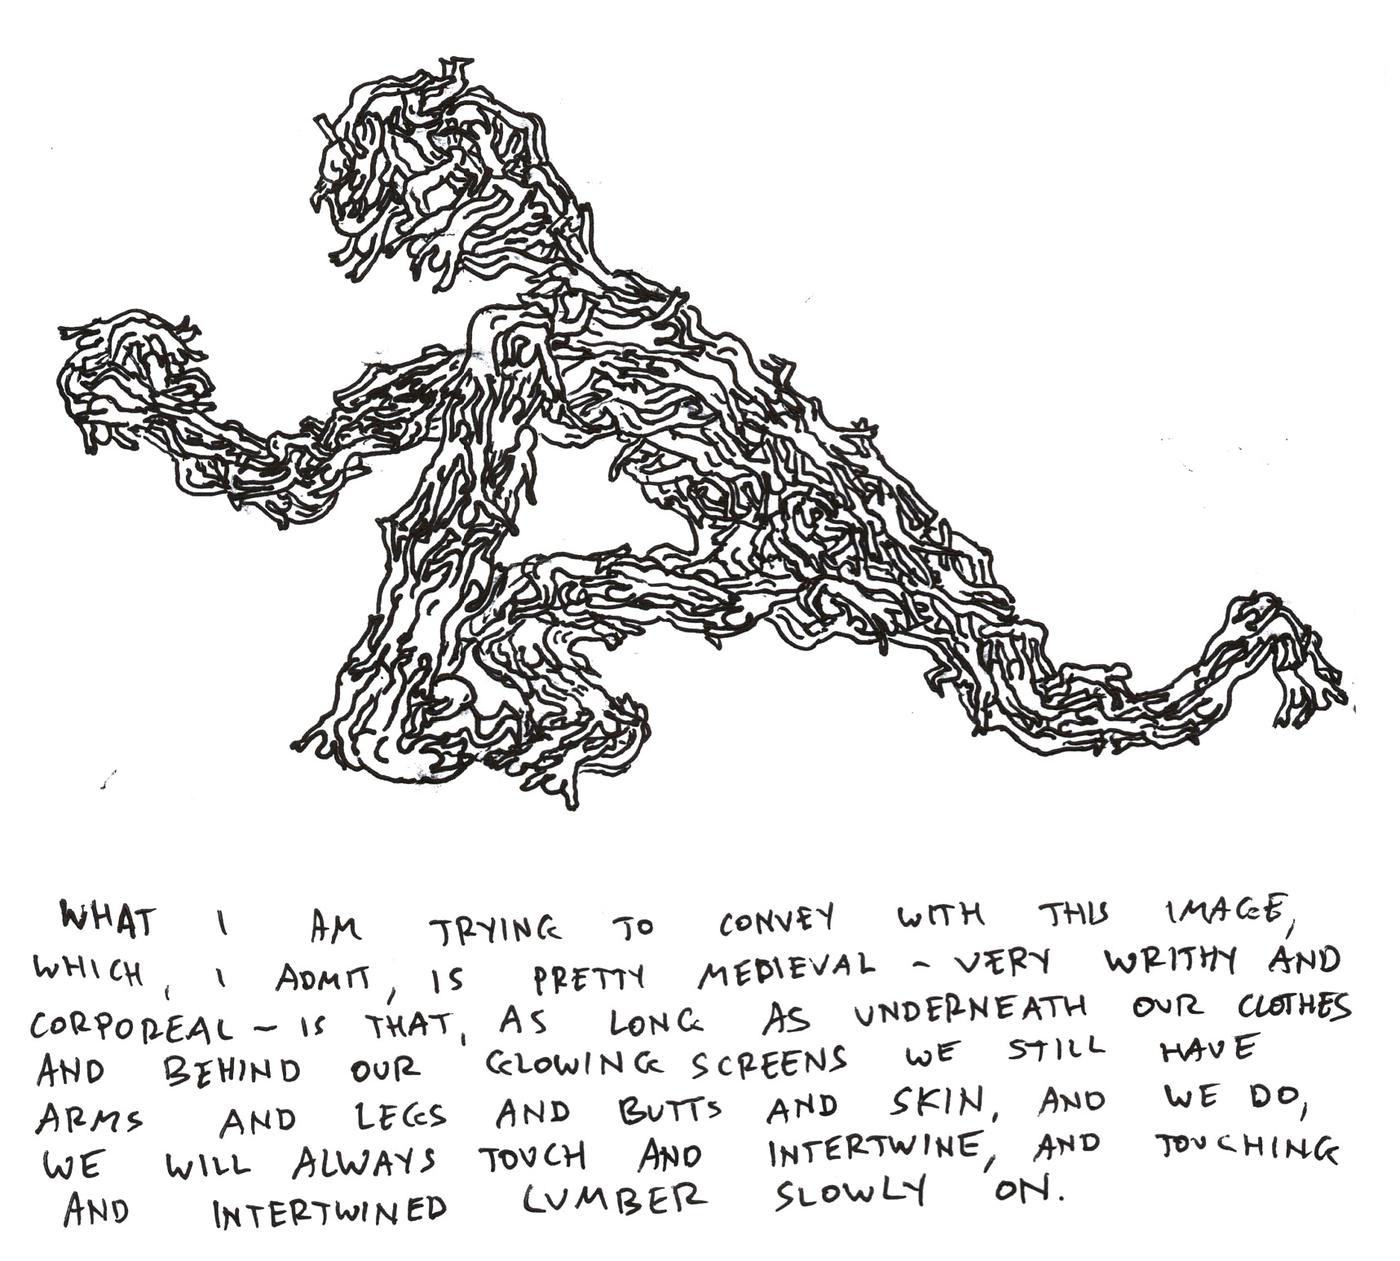 WHAT I AM TRYING TO CONVEY WITH THIS IMAGE,
WHICH, I ADMIT, IS PRETTY MEDIEVAL ~ VERY WRITHY AND
CORPOREAL ~ IS THAT, AS LONG AS UNDERNEATH OUR CLOTHES
AND BEHIND OUR GLOWING SCREENS WE STILL HAVE
ARMS AND LEGS AND BUTTS AND SKIN, AND WE DO,
WE WILL ALWAYS TOUCH AND INTERTWINE, AND TOUCHING
AND INTERTWINED LUMBER SLOWLY ON.